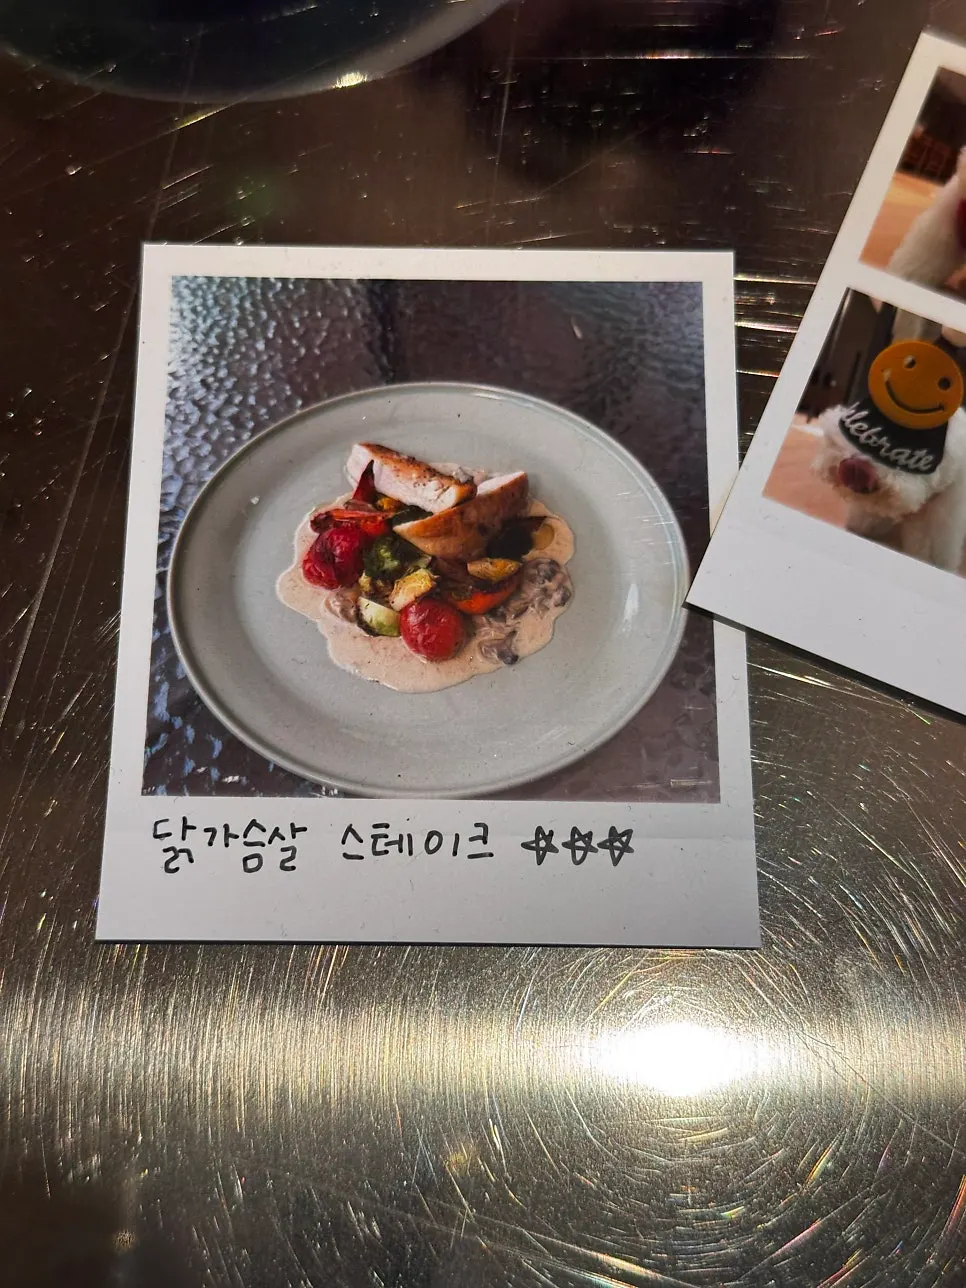 닭가슴살 스테이크 ☆☆☆
elebrate